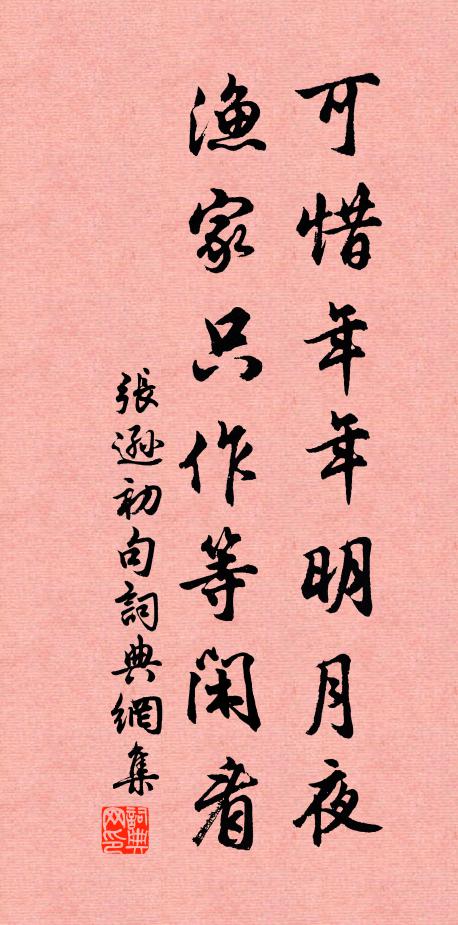 可惜年年明月夜
漁家只作等閑看
張遜初句詞典網集
詞典网印